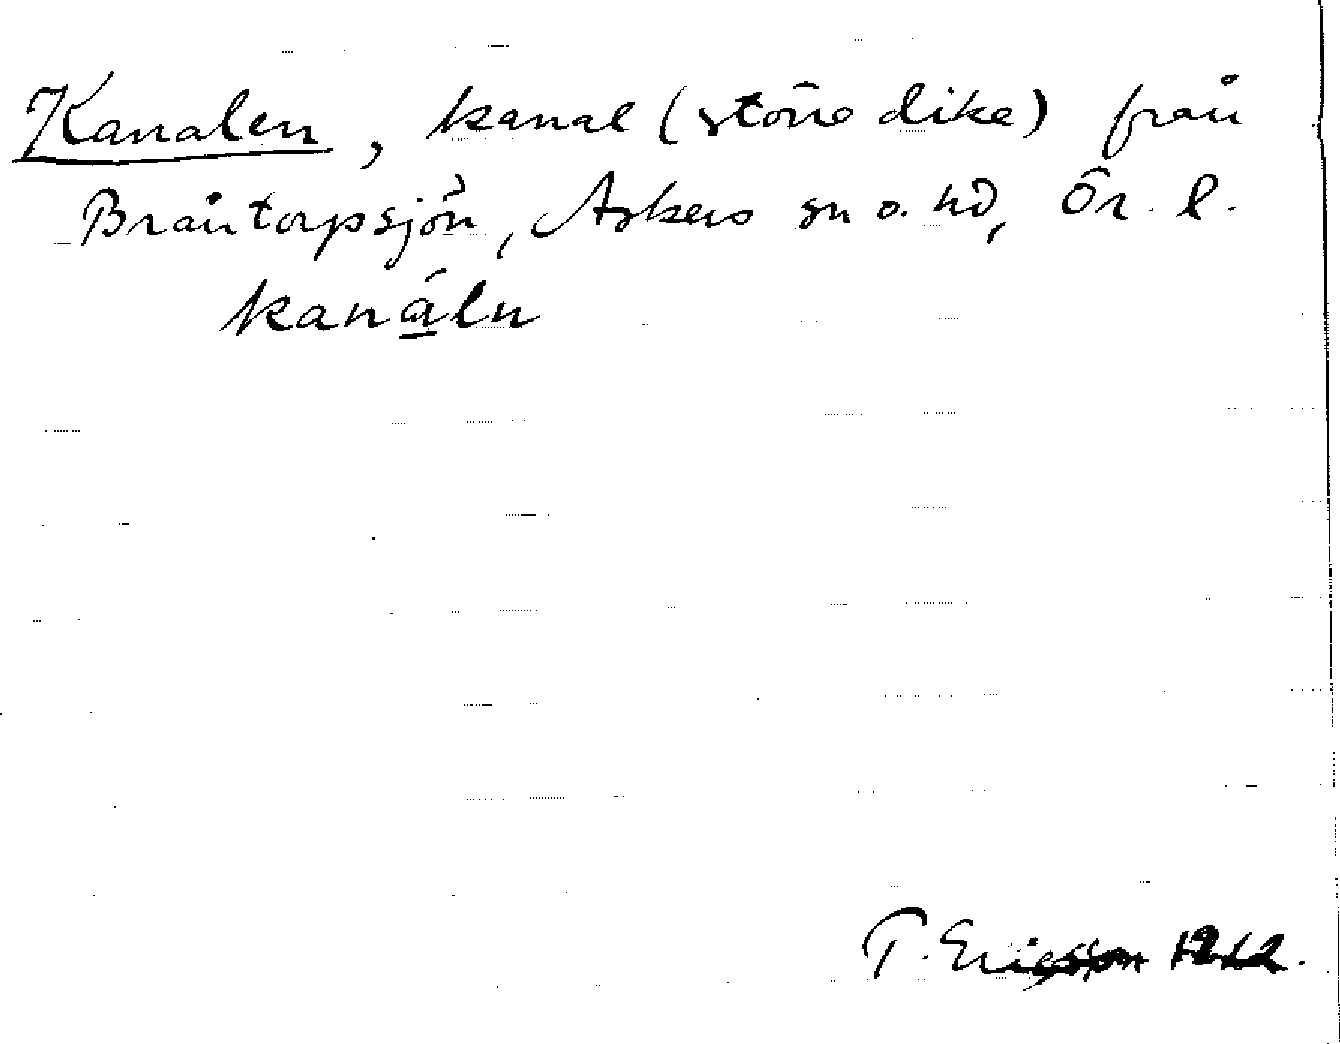 Kanalen, kanal (större dike) från
Bråntorpsjön, Askers sn o. hd, Ör. l.
kanáln
T. Ericsson